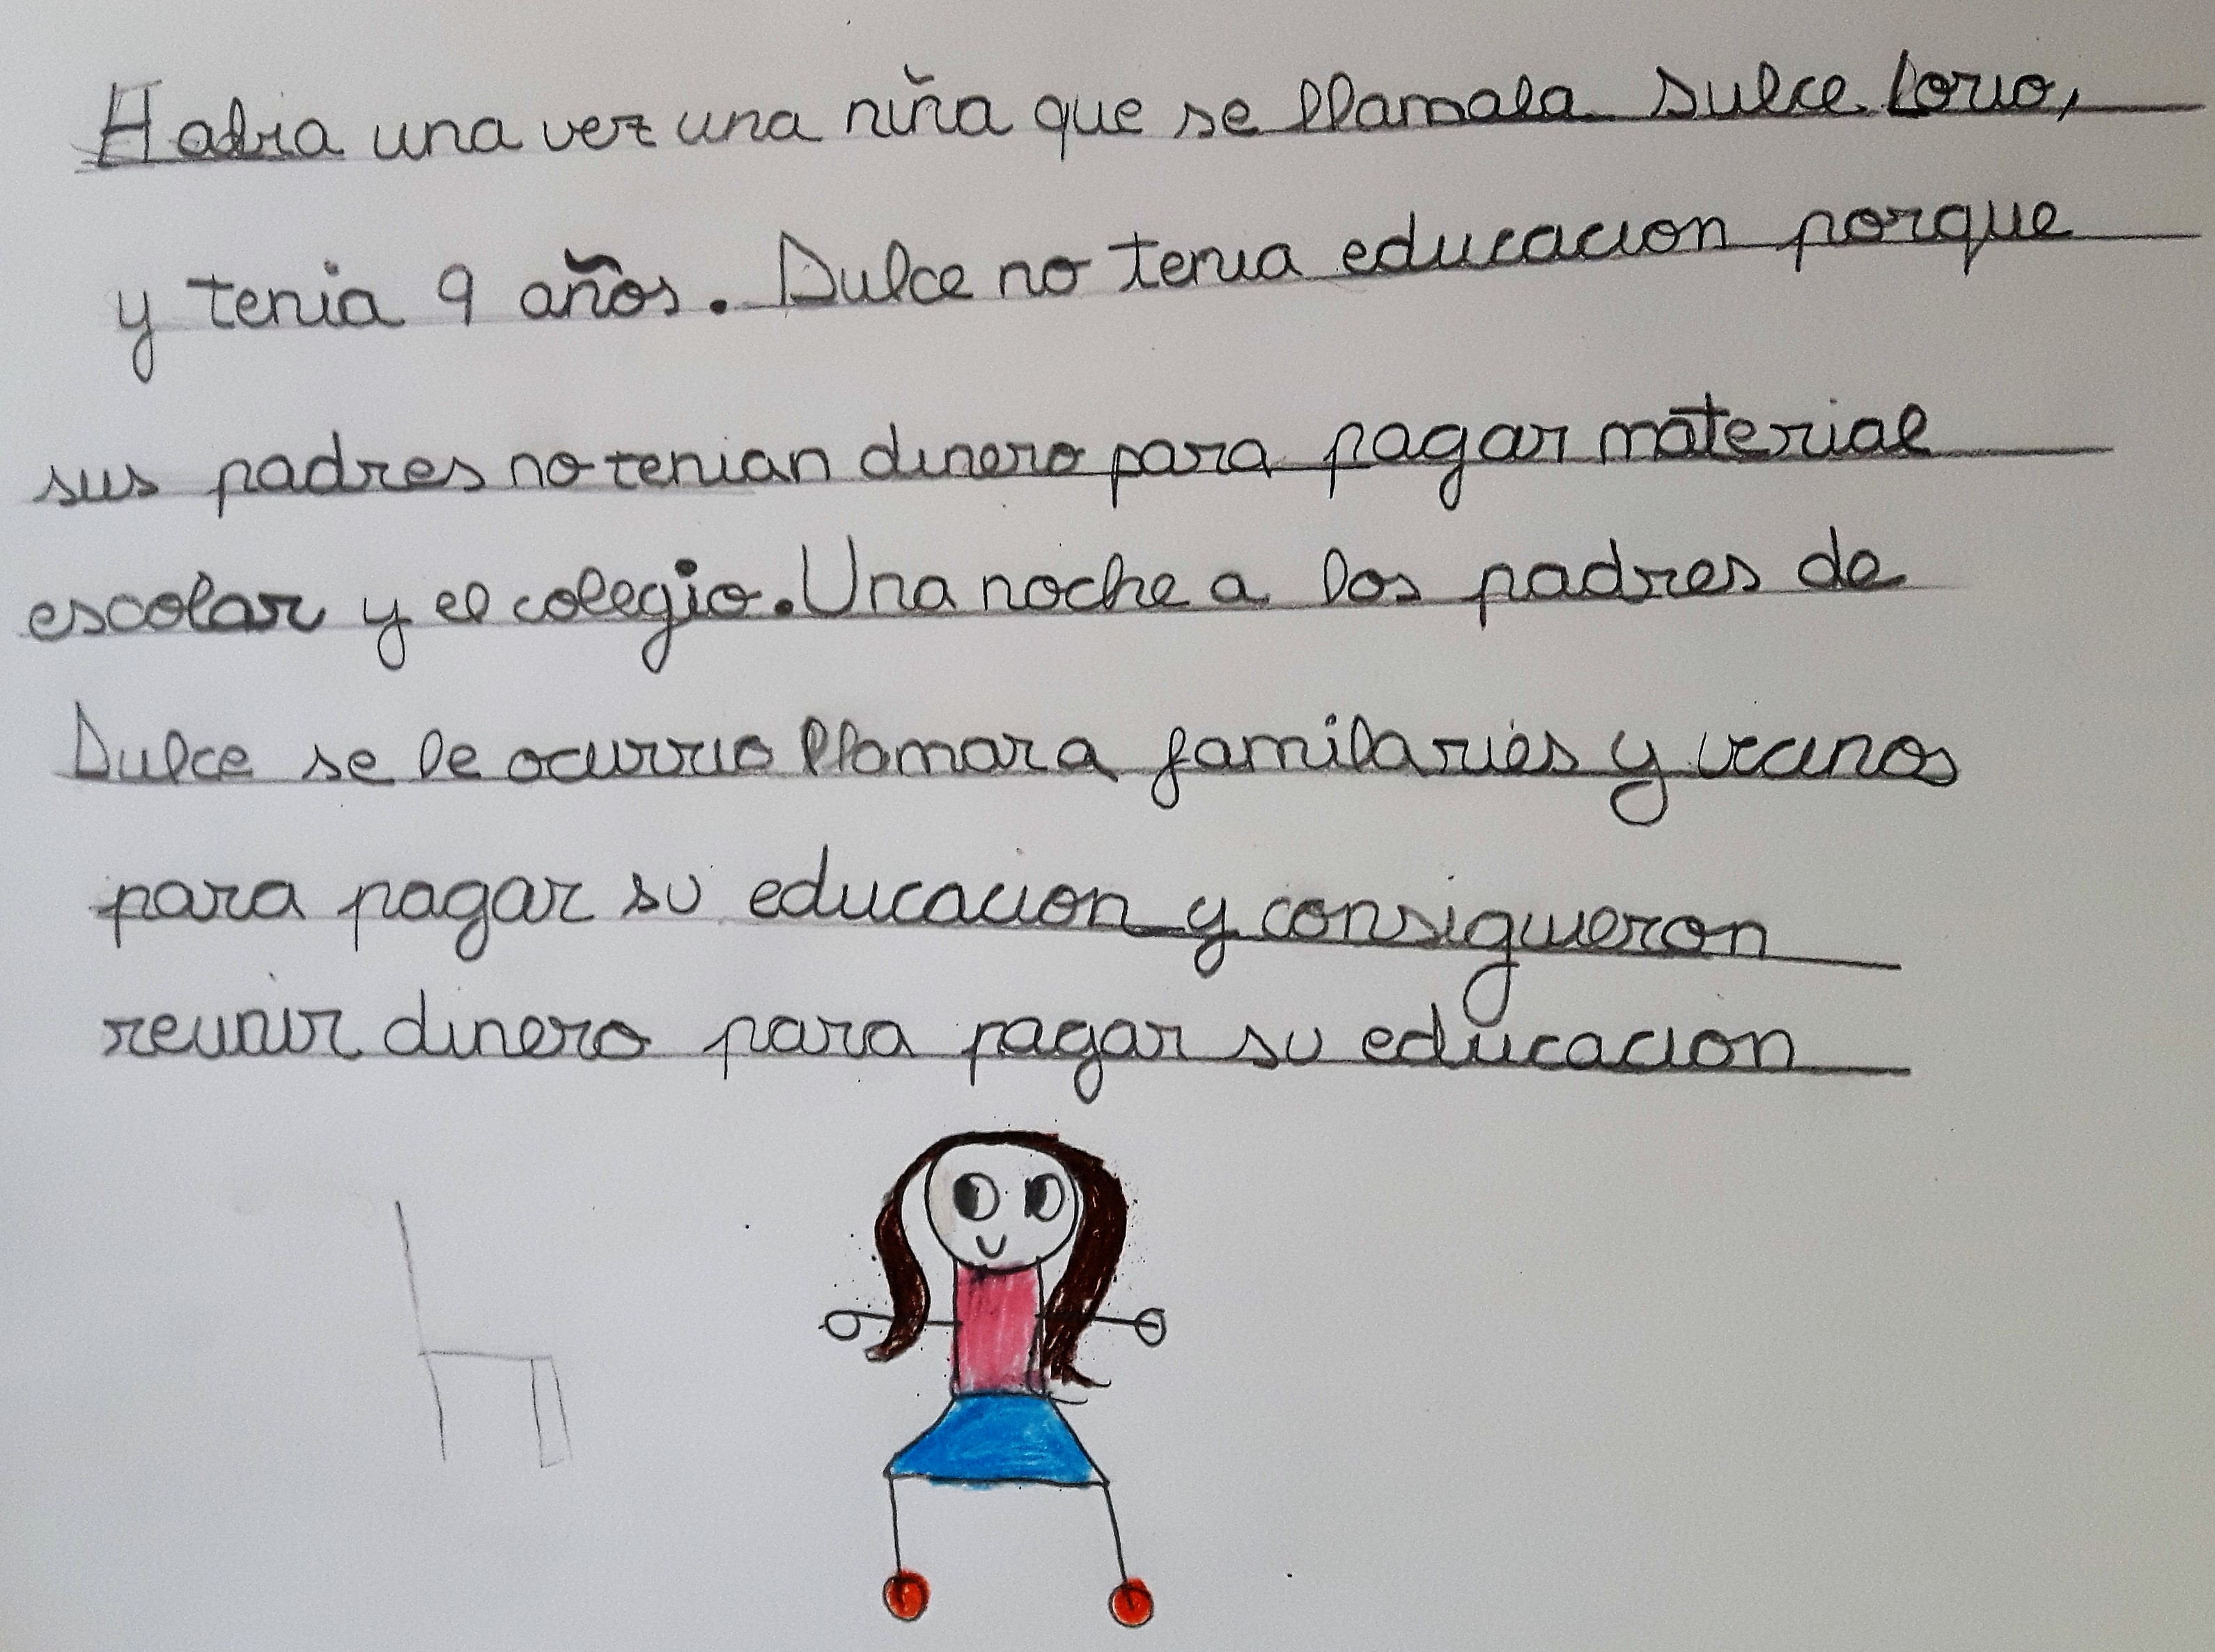 Habia una vez una niña que se llamaba Dulce Lorio,
y tenia 9 años. Dulce no tenia educacion porque
sus padres no tenian dinero para pagar material
escolar y el colegio. Una noche a los padres de
Dulce se le ocurrio llamar a familaries y vecinos
para pagar su educacion y consiguieron
reunir dinero para pagar su educacion